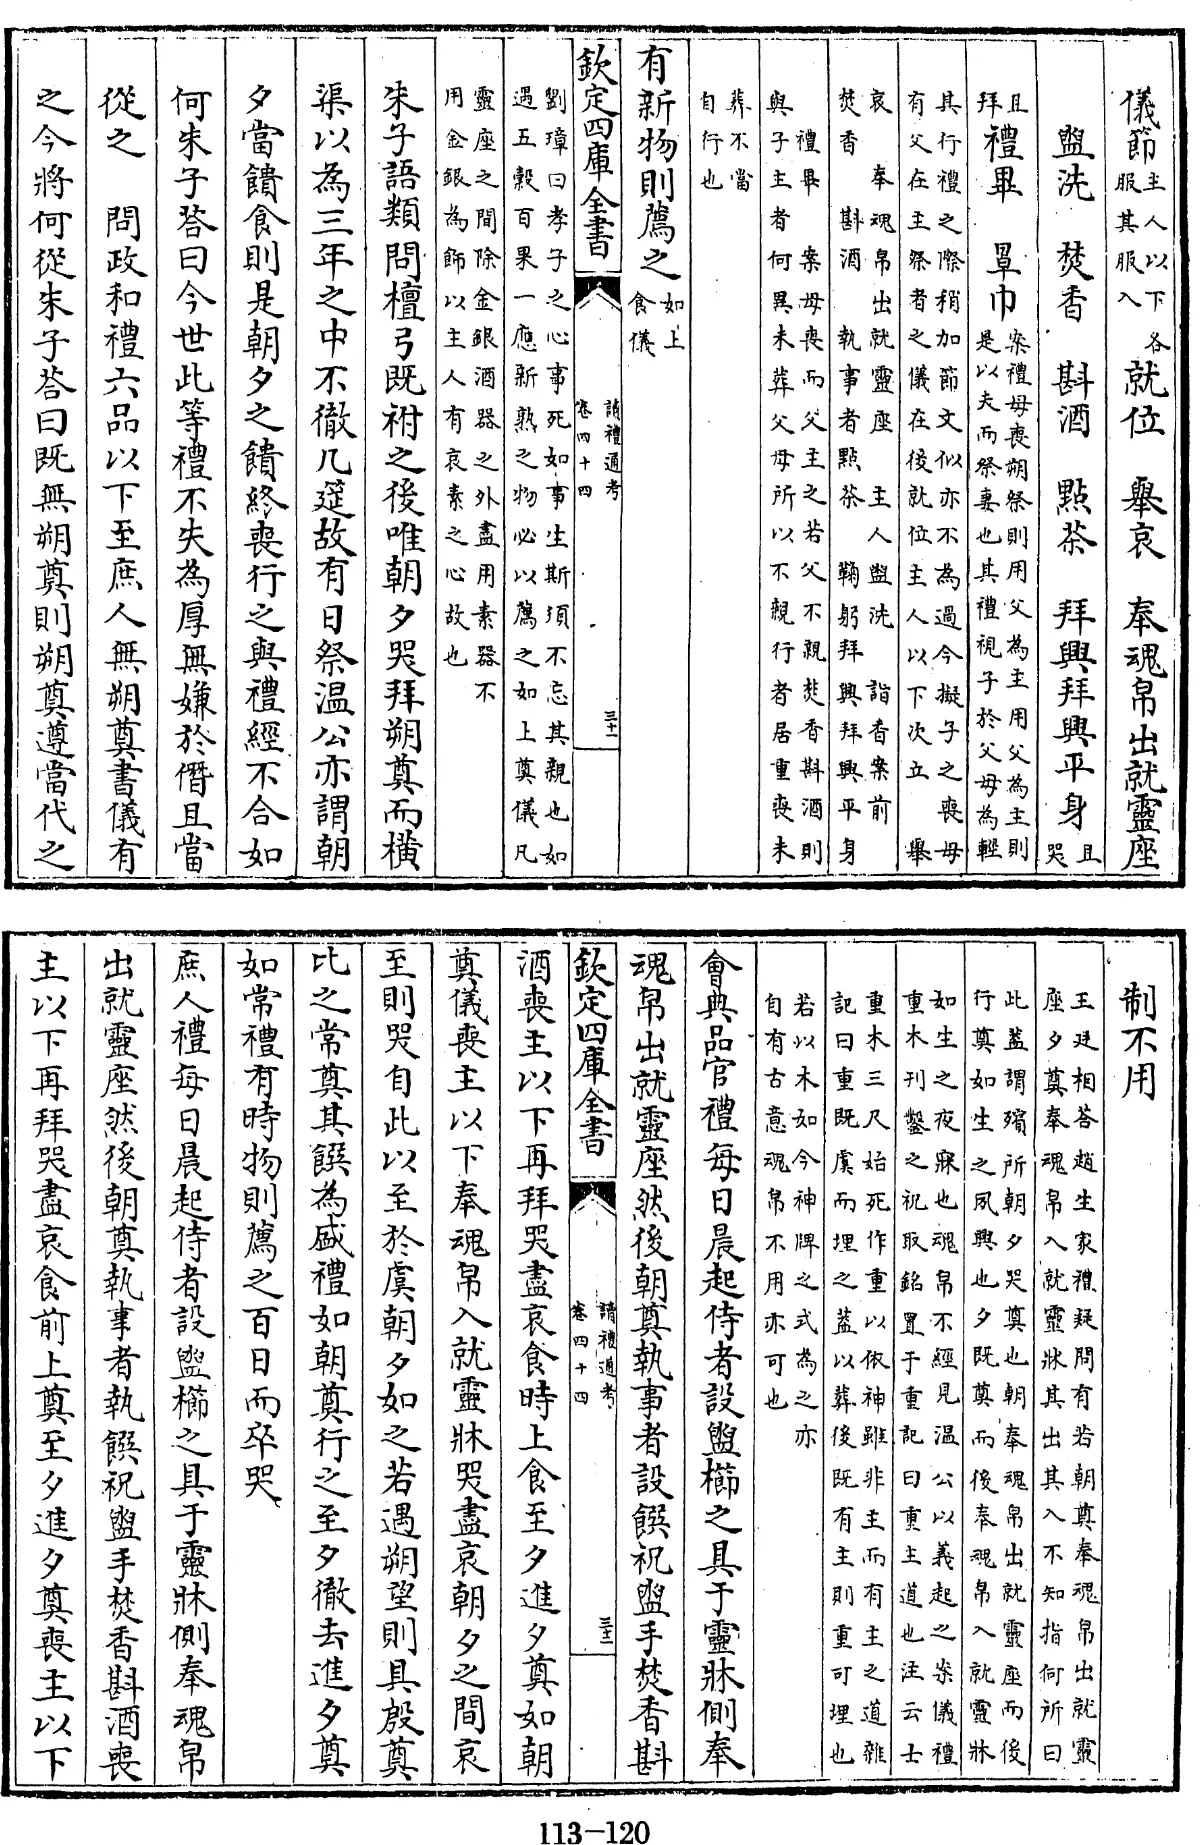 儀節主人以下各服其服入就位　舉哀　奉魂帛出就靈座
盥洗　焚香　斟酒　點茶　拜興拜興平身且哭
且拜禮畢　罩巾案禮母喪朔祭則用父為主用父為主則是以夫而祭妻也其禮視子於父母為輕
其行禮之際稍加節文似亦不為過今擬子之喪母
有父在主祭者之儀在後就位主人以下次立　舉
哀　奉魂帛出就靈座　主人盥洗　詣香案前
焚香　斟酒　執事者點茶　鞠躬拜興拜興平身
禮畢　案母喪而父主之若父不親焚香斟酒則
與子主者何異未葬父母所以不親行者居重喪未
葬不當
自行也
有新物則薦之如上食儀
欽定四庫全書　讀禮通考卷四十四　三十一
劉璋曰孝子之心事死如事生斯須不忘其親也如
遇五穀百果一應新熟之物必以薦之如上奠儀凡
靈座之間除金銀酒器之外盡用素器不
用金銀為飾以主人有哀素之心故也
朱子語類問檀弓既祔之後唯朝夕哭拜朔奠而橫
渠以為三年之中不徹几筵故有日祭温公亦謂朝
夕當饋食則是朝夕之饋終喪行之與禮經不合如
何朱子荅曰今世此等禮不失為厚無嫌於僭且當
從之　問政和禮六品以下至庶人無朔奠書儀有
之今將何從朱子荅曰既無朔奠則朔奠遵當代之
制不用
王廷相荅趙生家禮疑問有若朝奠奉魂帛出就靈
座夕奠奉魂帛入就靈牀其出其入不知指何所曰
此蓋謂殯所朝夕哭奠也朝奉魂帛出就靈座而後
行奠如生之夙興也夕既奠而後奉魂帛入就靈牀
如生之夜寐也魂帛不經見温公以義起之柴儀禮
重木刊鑿之祝取銘置于重記曰重主道也注云士
重木三尺始死作重以依神雖非主而有主之道雜
記曰重既虞而埋之蓋以葬後既有主則重可埋也
若以木如今神牌之式為之亦
自有古意魂帛不用亦可也
會典品官禮每日晨起侍者設盥櫛之具于靈牀側奉
魂帛出就靈座然後朝奠執事者設饌祝盥手焚香斟
欽定四庫全書　讀禮通考卷四十四　三十二
酒喪主以下再拜哭盡哀食時上食至夕進夕奠如朝
奠儀喪主以下奉魂帛入就靈牀哭盡哀朝夕之間哀
至則哭自此以至於虞朝夕如之若遇朔望則具殷奠
比之常奠其饌為盛禮如朝奠行之至夕徹去進夕奠
如常禮有時物則薦之百日而卒哭
庶人禮每日晨起侍者設盥櫛之具于靈牀側奉魂帛
出就靈座然後朝奠執事者執饌祝盥手焚香斟酒喪
主以下再拜哭盡哀食前上奠至夕進夕奠喪主以下
113-120